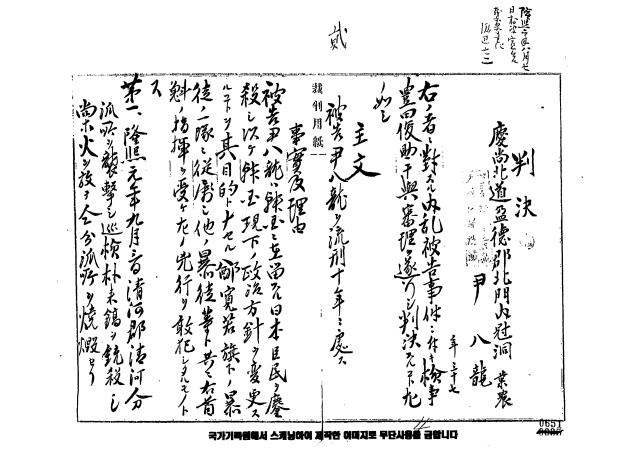 隆熙二年八月七
日
貳
判決
慶尚北道盈德郡北門內冠洞 業農
尹八龍
年三十七
右ノ者ニ對スル內乱被告事件ニ付キ檢事
豊田俊助干與審理ヲ遂ケシ判決スルコト左
ノ如シ
主文
被告尹八龍ヲ流刑十年ニ處ス
裁判用紙
事實及理由
被告尹八龍ハ韓国ニ在留スル日本臣民ヲ鏖
殺シ以テ韓国現下ノ政治方針ヲ変更ス
ルコトヲ其目的トナセル鄭寬若旗下ノ暴
徒ノ一隊ニ從ヒ他ノ暴徒等ト共ニ右首
魁ノ指揮ヲ受ケ左ノ兇行ヲ敢犯シタルモノト
ス
第一、隆熙元年九月三日清河郡清河分
派所ヲ襲擊シ巡檢朴来鎬ヲ銃殺シ
尚ホ火ヲ放ヲ仝分派所ヲ燒燬セリ
0651
국가기록원에서 스캐닝하여 제작한 이미지로 무단사용을 금합니다